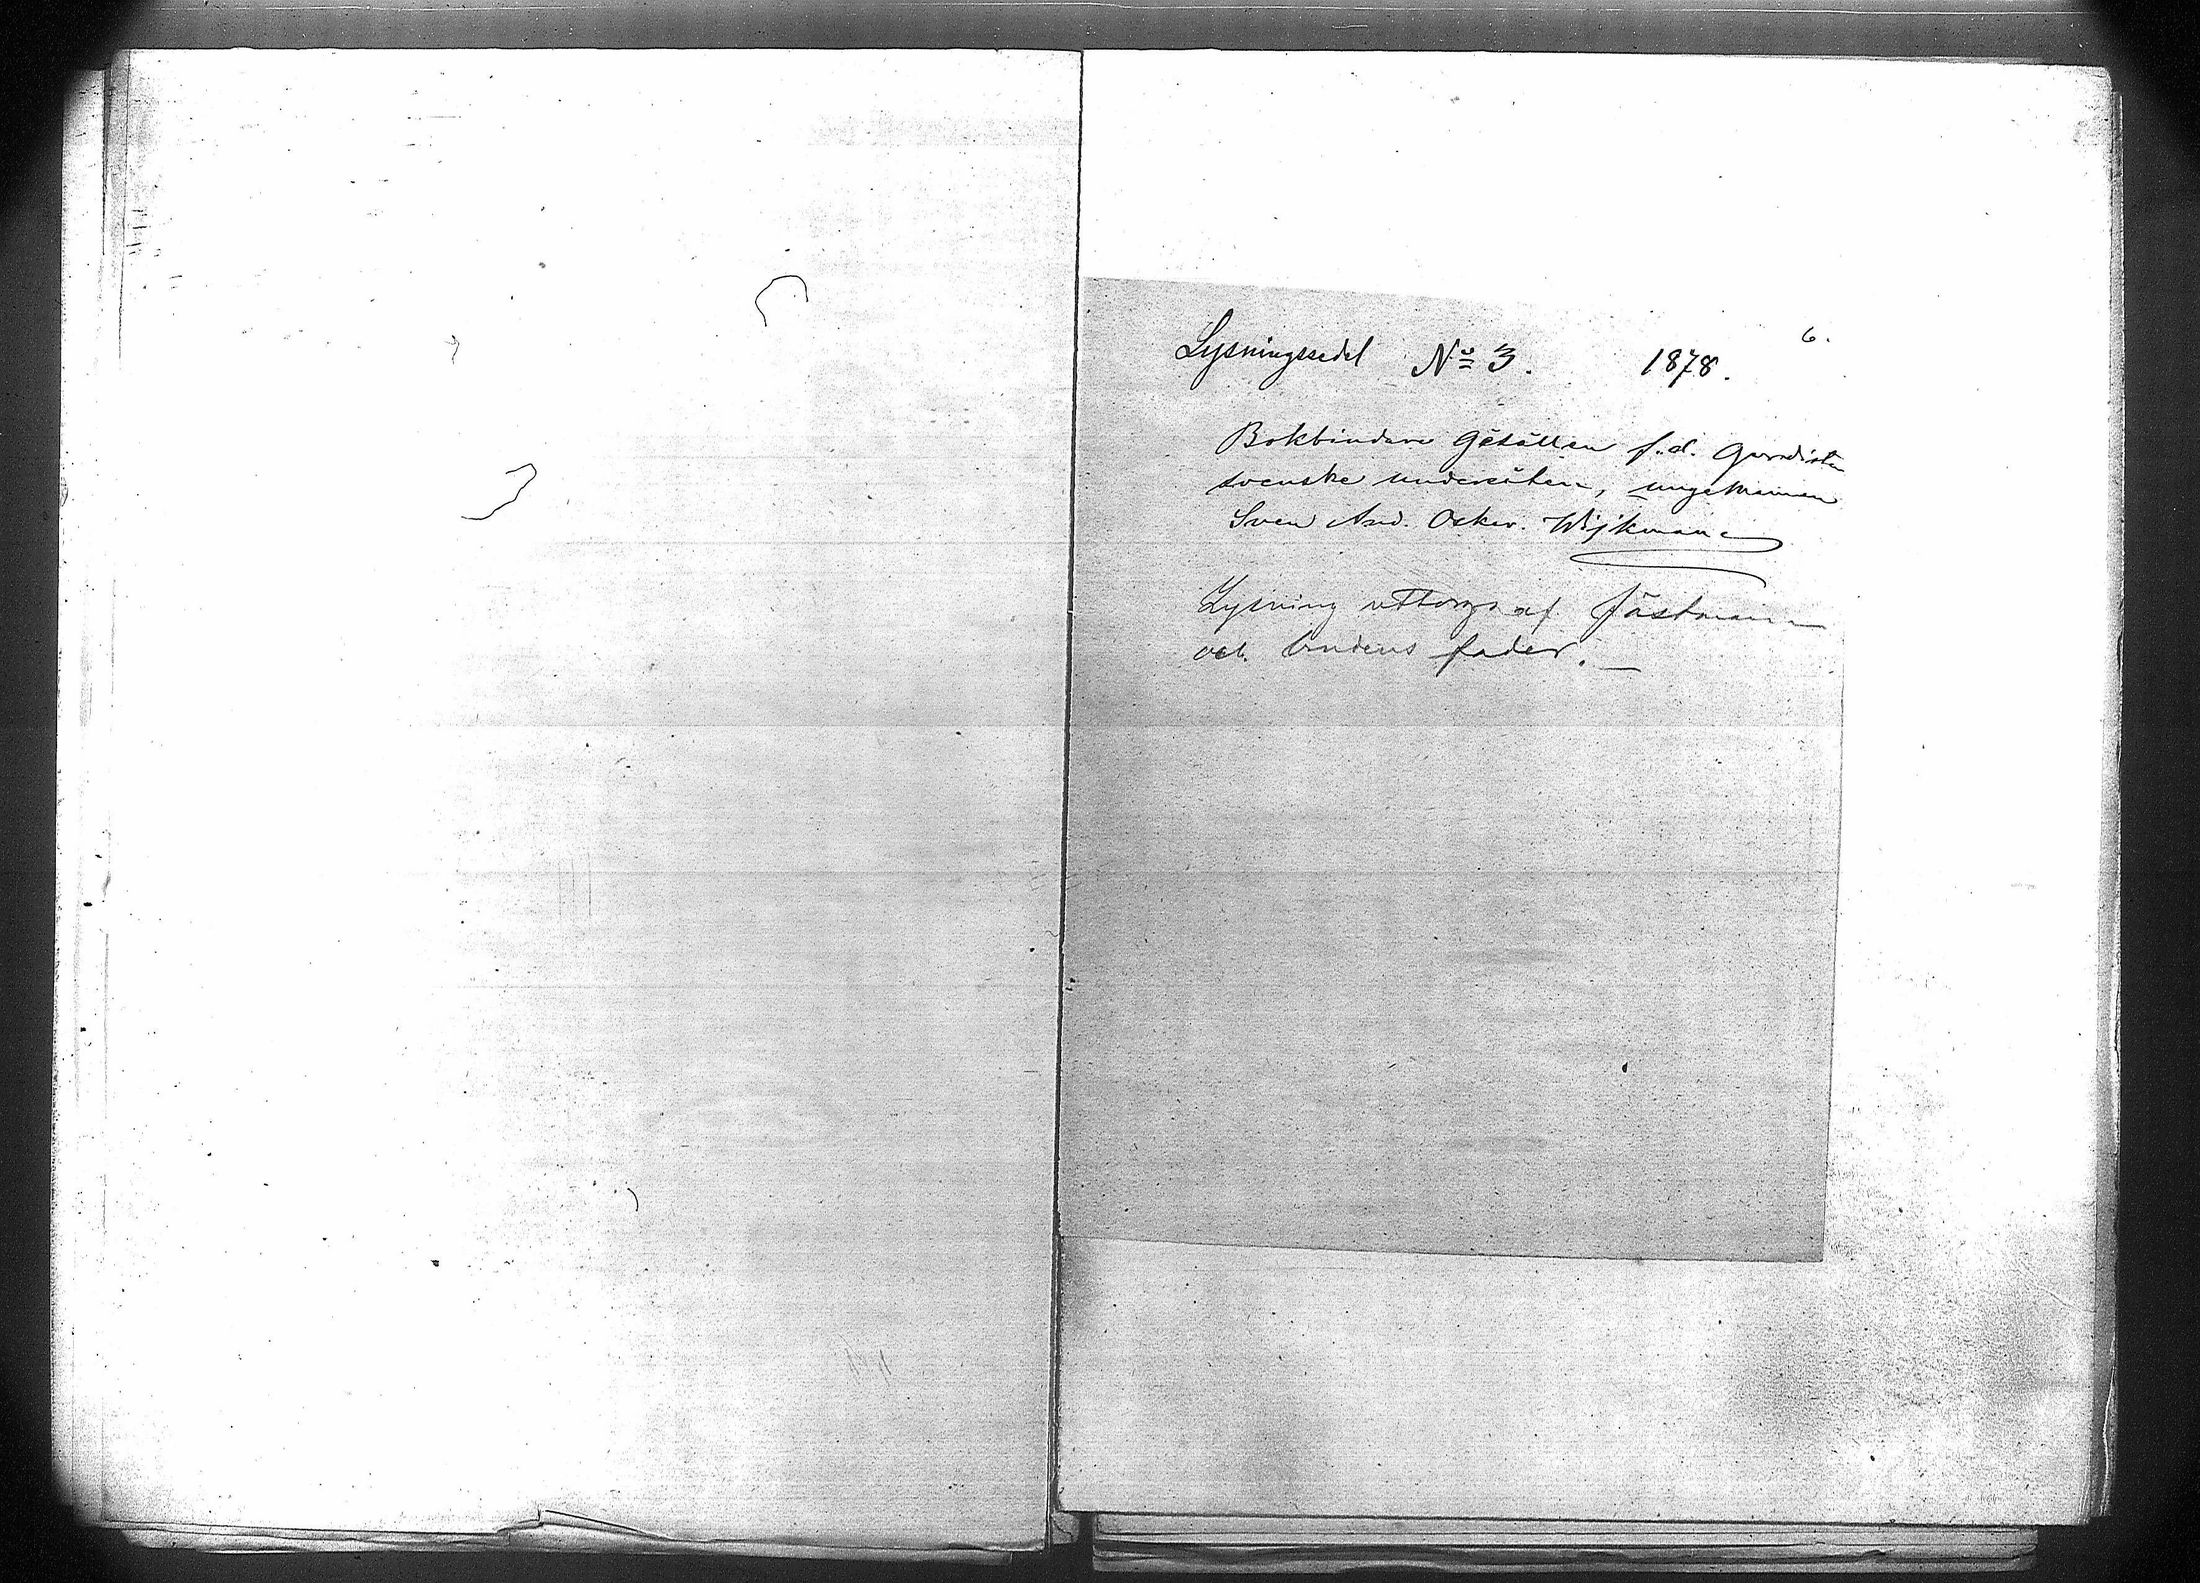 6.
Lysningssedel No 3. 1878.
Bokbindare Gesällen f.d. Gardisten
svenske undersåten, ungemannen
Sven And. Oskar. Wijkman
Lysning uttages af Fästman
och brudens fader.